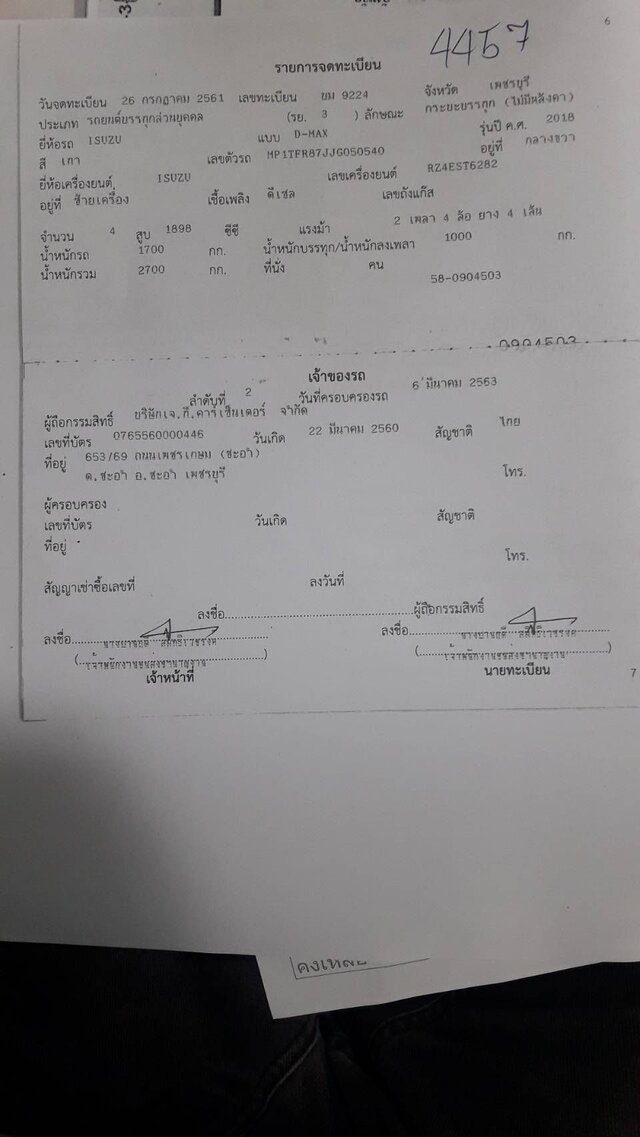 6
4457
รายการจดทะเบียน
วันจดทะเบียน 26 กรกฎาคม 2561 เลขทะเบียน ขม 9224 จังหวัด เพชรบุรี
ประเภท รถยนต์บรรทุกส่วนบุคคล (รย. 3 ) ลักษณะ กระบะบรรทุก (ไม่มีหลังคา)
ยี่ห้อรถ ISUZU แบบ D-MAX รุ่นปี ค.ศ. 2018
สี เทา เลขตัวรถ MP1TFR87JJG050540 อยู่ที่ กลางขวา
ยี่ห้อเครื่องยนต์ ISUZU เลขเครื่องยนต์ RZ4EST6282
อยู่ที่ ซ้ายเครื่อง เชื้อเพลิง ดีเซล เลขถังแก๊ส
จำนวน 4 สูบ 1898 ซีซี แรงม้า 2 เพลา 4 ล้อ ยาง 4 เส้น
น้ำหนักรถ 1700 กก. น้ำหนักบรรทุก/น้ำหนักลงเพลา 1000 กก.
น้ำหนักรวม 2700 กก. ที่นั่ง คน
58-0904503
0904503
เจ้าของรถ
ลำดับที่ 2 วันที่ครอบครองรถ 6 มีนาคม 2563
ผู้ถือกรรมสิทธิ์ บริษัทเจ.ที.คาร์เซ็นเตอร์ จำกัด
เลขที่บัตร 0765560000446 วันเกิด 22 มีนาคม 2560 สัญชาติ ไทย
ที่อยู่ 653/69 ถนนเพชรเกษม (ชะอำ)
ต.ชะอำ อ.ชะอำ เพชรบุรี โทร.
ผู้ครอบครอง
เลขที่บัตร วันเกิด สัญชาติ
ที่อยู่
โทร.
สัญญาเช่าซื้อเลขที่ ลงวันที่
ลงชื่อ ผู้ถือกรรมสิทธิ์
ลงชื่อ ลงชื่อ
(เจ้าพนักงานขนส่งชำนาญงาน) (เจ้าพนักงานขนส่งชำนาญงาน)
เจ้าหน้าที่ นายทะเบียน
7
คงเหลือ